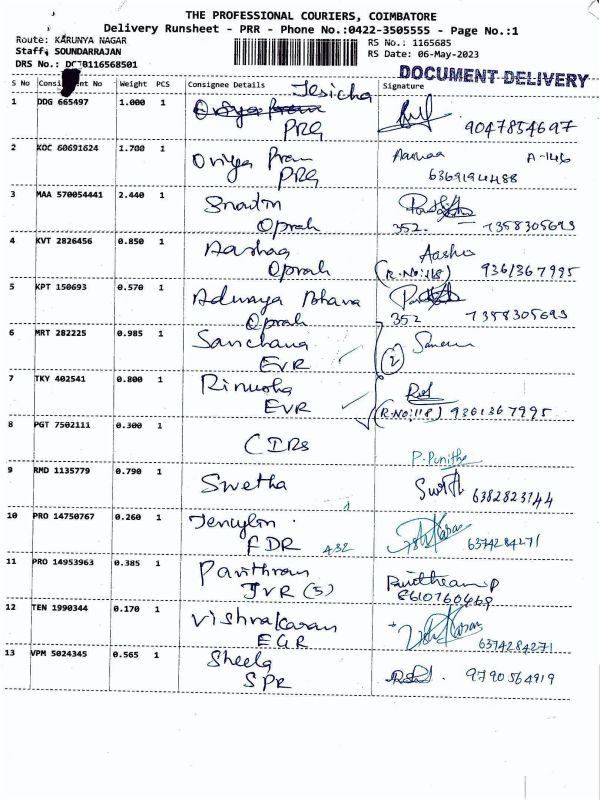 THE PROFESSIONAL COURIERS, COIMBATORE
Delivery Runsheet - PRR - Phone No.:0422-3505555 - Page No.:1
Route: KARUNYA NAGAR
RS No.: 1165685
Staff: SOUNDARRAJAN
RS Date: 06-May-2023
DRS No.:
DOCUMENT DELIVERY
S No Consignment No Weight PCS Consignee Details Signature
1 DDG 665497 1.000 1 Jesicha
PRG 9047854697
2 KOC 60691624 1.700 1 Oviya Pram A-146
PRG 6369194488
3 MAA 570054441 2.440 1
Oprah 352. 7358305693
4 KVT 2826456 0.850 1 Aashaa Aasha
Oprah (R.No:118) 9361367995
5 KPT 150693 0.570 1 Adwaya Bhava
Oprah 352 7358305693
6 MRT 282225 0.985 1 Sanchana
EVR 2
7 TKY 402541 0.800 1 Rinusha
EVR (R.No:118) 9361367995
8 PGT 7502111 0.300 1
CIRs P. Punitha
9 RMD 1135779 0.790 1 Swetha 6382823144
10 PRO 14750767 0.260 1
FDR 432 6374284271
11 PRO 14953963 0.385 1 Pavithran
JVR (5) 8610760469
12 TEN 1990344 0.170 1 Vishrakaran
EGR 6374284271
13 VPM 5024345 0.565 1 Sheela
SPR 9790564919